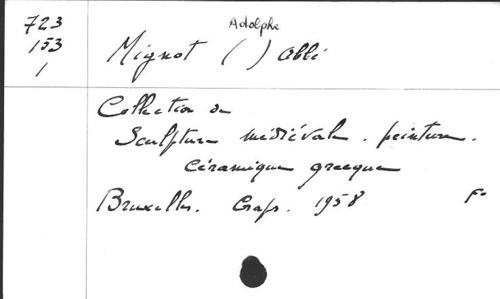 723
153
1
Adolphe
Mignot ( ) Abbé
Collection de
Sculpture médiévale. peinture.
Céramique grecque
Bruxelles. Craps. 1958 F°